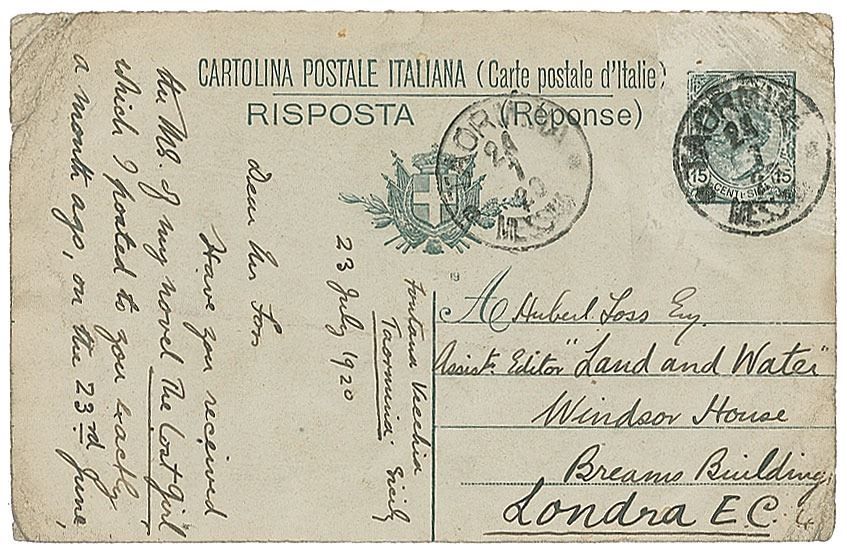 CARTOLINA POSTALE ITALIANA (Carte postale d'Italie)
RISPOSTA (Réponse)
TAORMINA
24
7
20
MESSINA
TAORMINA
24
7
MESSINA
15 CENTESIMI 15
19
A Hubert Foss Esq.
Assist. Editor "Land and Water"
Windsor House
Breams Building
Londra E.C. 4
Fontana Vecchia
Taormina Sicily
23 July 1920
Dear Mr Foss
Have you received
the MS. of my novel The Lost Girl,
which I posted to you exactly
a month ago, on the 23rd June,